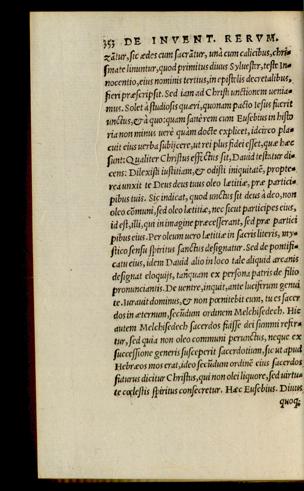 353 DE INVENT. RERVM.
zātur, sic ædes cum sacrātur, unà cum calicibus, chris-
smate linuntur, quod primitus diuus Syluestr, teste In
nocentio, eius nominis tertius, in epistolis decretalibus,
fieri præscripsit. Sed iam ad Christi unctionem uenia-
mus. Solet à studiosis quæri, quonam pacto Iesus fuerit
unctus, & à quo: quam sanè rem cum Eusebius in histo
ria non minus uerè quàm docte explicet, idcirco pla-
cuit eius uerba subijcere, ut rei plus fidei esset, quæ hæc
sunt: Qualiter Christus effectus sit, Dauid testatur di-
cens: Dilexisti iustitiam, & odisti iniquitatē, propte-
rea unxit te Deus deus tuus oleo lætitiæ, præ partici-
pibus tuis. Sic indicat, quod unctus sit deus à deo, non
oleo cōmuni, sed oleo lætitiæ, nec sicut participes eius,
id est, illi, qui in imagine præcesserant, sed præ partici
pibus eius. Per oleum uero lætitiæ in sacris literis, my-
stico sensu spiritus sanctus designatur. Sed de pontifi-
catu eius, idem Dauid alio in loco tale aliquid arcanis
designat eloquijs, tanquam ex persona patris de filio
pronunciantis. De uentre, inquit, ante luciferum genui
te. Iurauit dominus, & non pœnitebit eum, tu es sacer
dos in æternum, secūdum ordinem Melchisedech. Hic
autem Melchisedech sacerdos fuisse dei summi refer-
tur, sed quia non oleo communi perunctus, neque ex
successione generis susceperit sacerdotium, sic ut apud
Hebræos mos erat, ideo secūdum ordinē eius sacerdos
futurus dicitur Christus, qui non olei liquore, sed uirtu-
te cœlestis spiritus consecretur. Hæc Eusebius. Diuus
quoq;